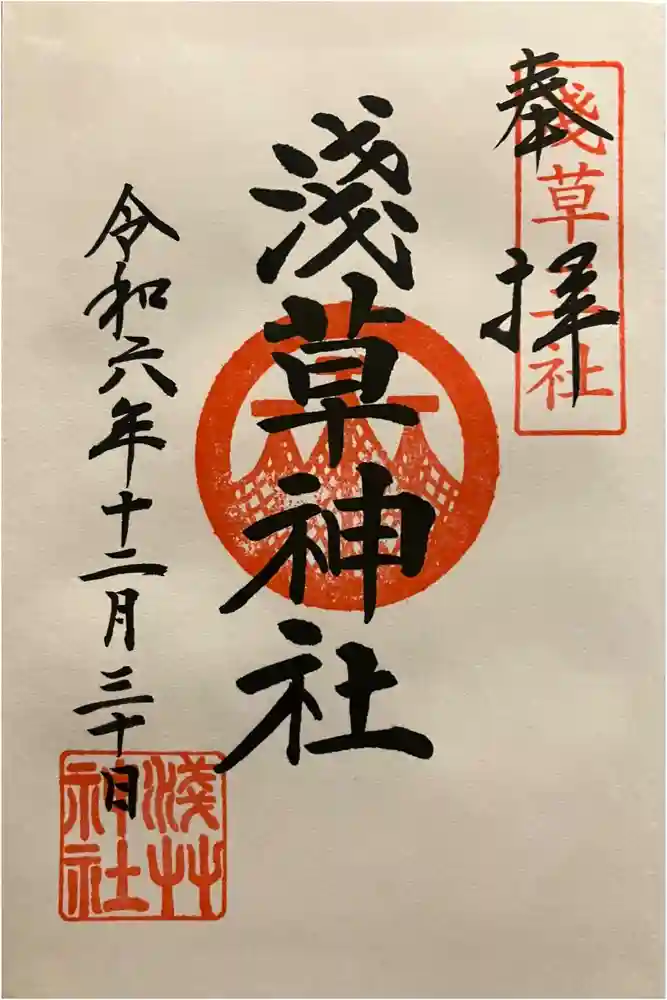 奉拝
淺草神社
令和六年十二月三十日
淺草
神社